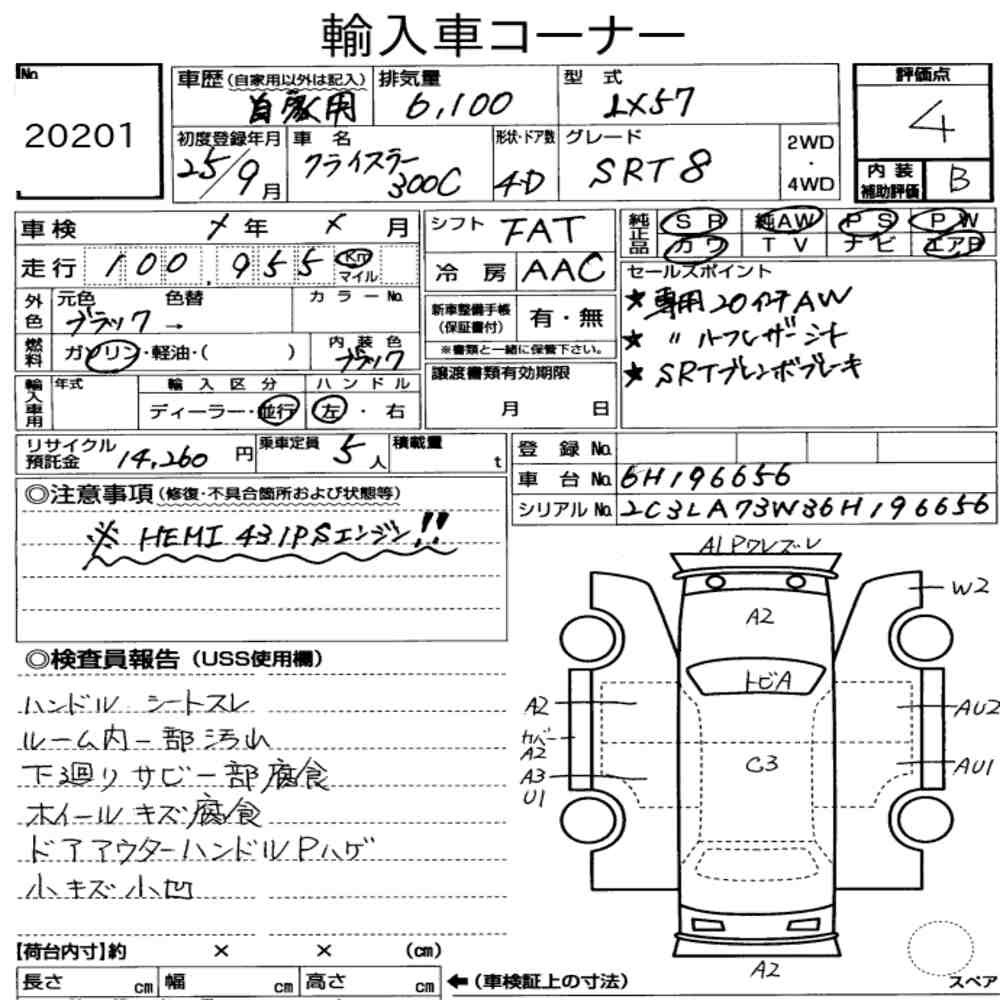 輸入車コーナー
No.
20201
車歴(自家用以外は記入)
自家用
排気量
6,100
型 式
LX57
評価点
4
初度登録年月
25/9月
車 名
クライスラー
300C
形状・ドア数
4D
グレード
SRT8
2WD
・
4WD
内 装
補助評価
B
車検 メ年 メ月
走行 100,955 Km マイル
シフト FAT
純正品
SR 純AW PS PW
カワ TV ナビ エアB
冷 房 AAC
セールスポイント
★専用20インチAW
★ 〃 ルーフレザーシート
★SRTブレンボブレーキ
外色
元色 色替 カラーNo.
ブラック→
新車整備手帳
(保証書付)
有・無
※書類と一緒に保管下さい。
燃料
ガソリン・軽油・( )
内 装 色
ブラック
譲渡書類有効期限
月 日
輸入車用
年式
輸 入 区 分
ディーラー・並行
ハ ン ド ル
左・右
リサイクル
預託金 14,260円
乗車定員 5人
積載量 t
登 録 No.
車 台 No. 6H196656
シリアル No. 2C3LA73W36H196656
◎注意事項(修復・不具合箇所および状態等)
※ HEMI 431PSエンジン!!
◎検査員報告(USS使用欄)
ハンドル シートスレ
ルーム内一部汚れ
下廻りサビ一部腐食
ホイールキズ腐食
ドアアウターハンドルPハゲ
小キズ小凹
A1Pワレズレ
W2
A2
トビA
A2
カバー
A2
A3
U1
C3
AU2
AU1
A2
スペア
【荷台内寸】約 × × (cm)
長さ cm 幅 cm 高さ cm
←(車検証上の寸法)